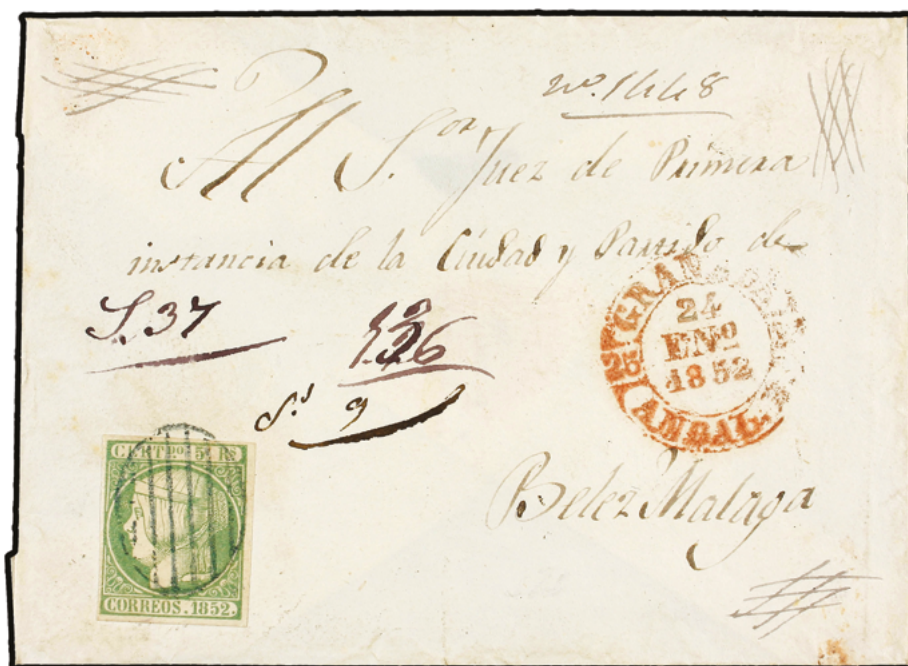 nº. 1448
Al S.or Juez de Primera
instancia de la Ciudad y Partido de
S. 37
S.s 9
GRANADA
24
ENº
1852
ANDAL.
Belez Malaga
CERTDO. 5 Rs
CORREOS. 1852.